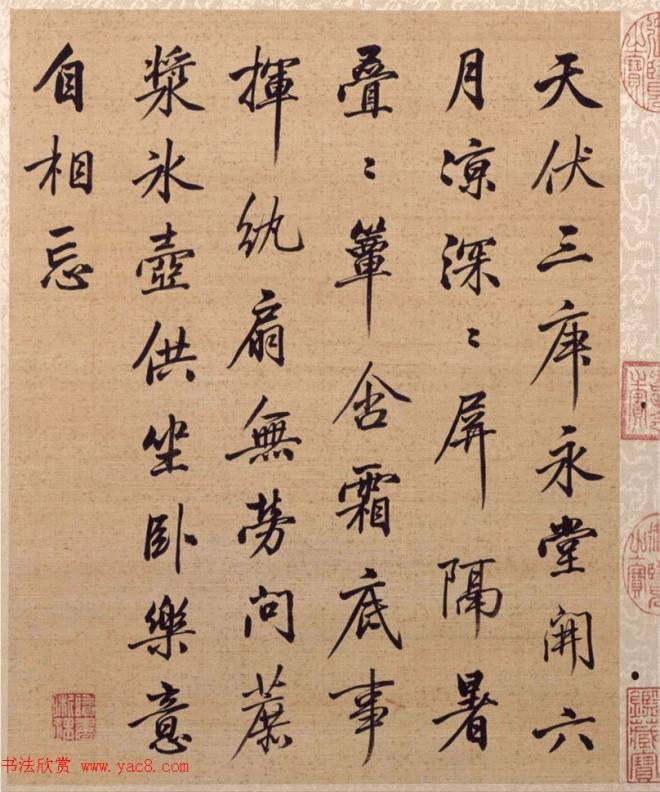 天伏三庚永堂開六
月涼深〻屏隔暑
疊〻簟含霜底事
揮紈扇無勞問蔗
漿氷壺供坐臥樂意
自相忘
鑑藏寶
书法欣赏 www.yac8.com